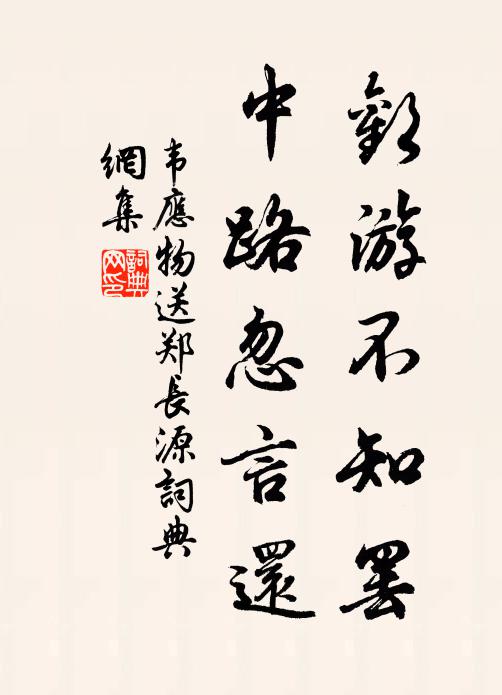 歡游不知罷
中路忽言還
韦應物送郑長源詞典
網集
詞典网印